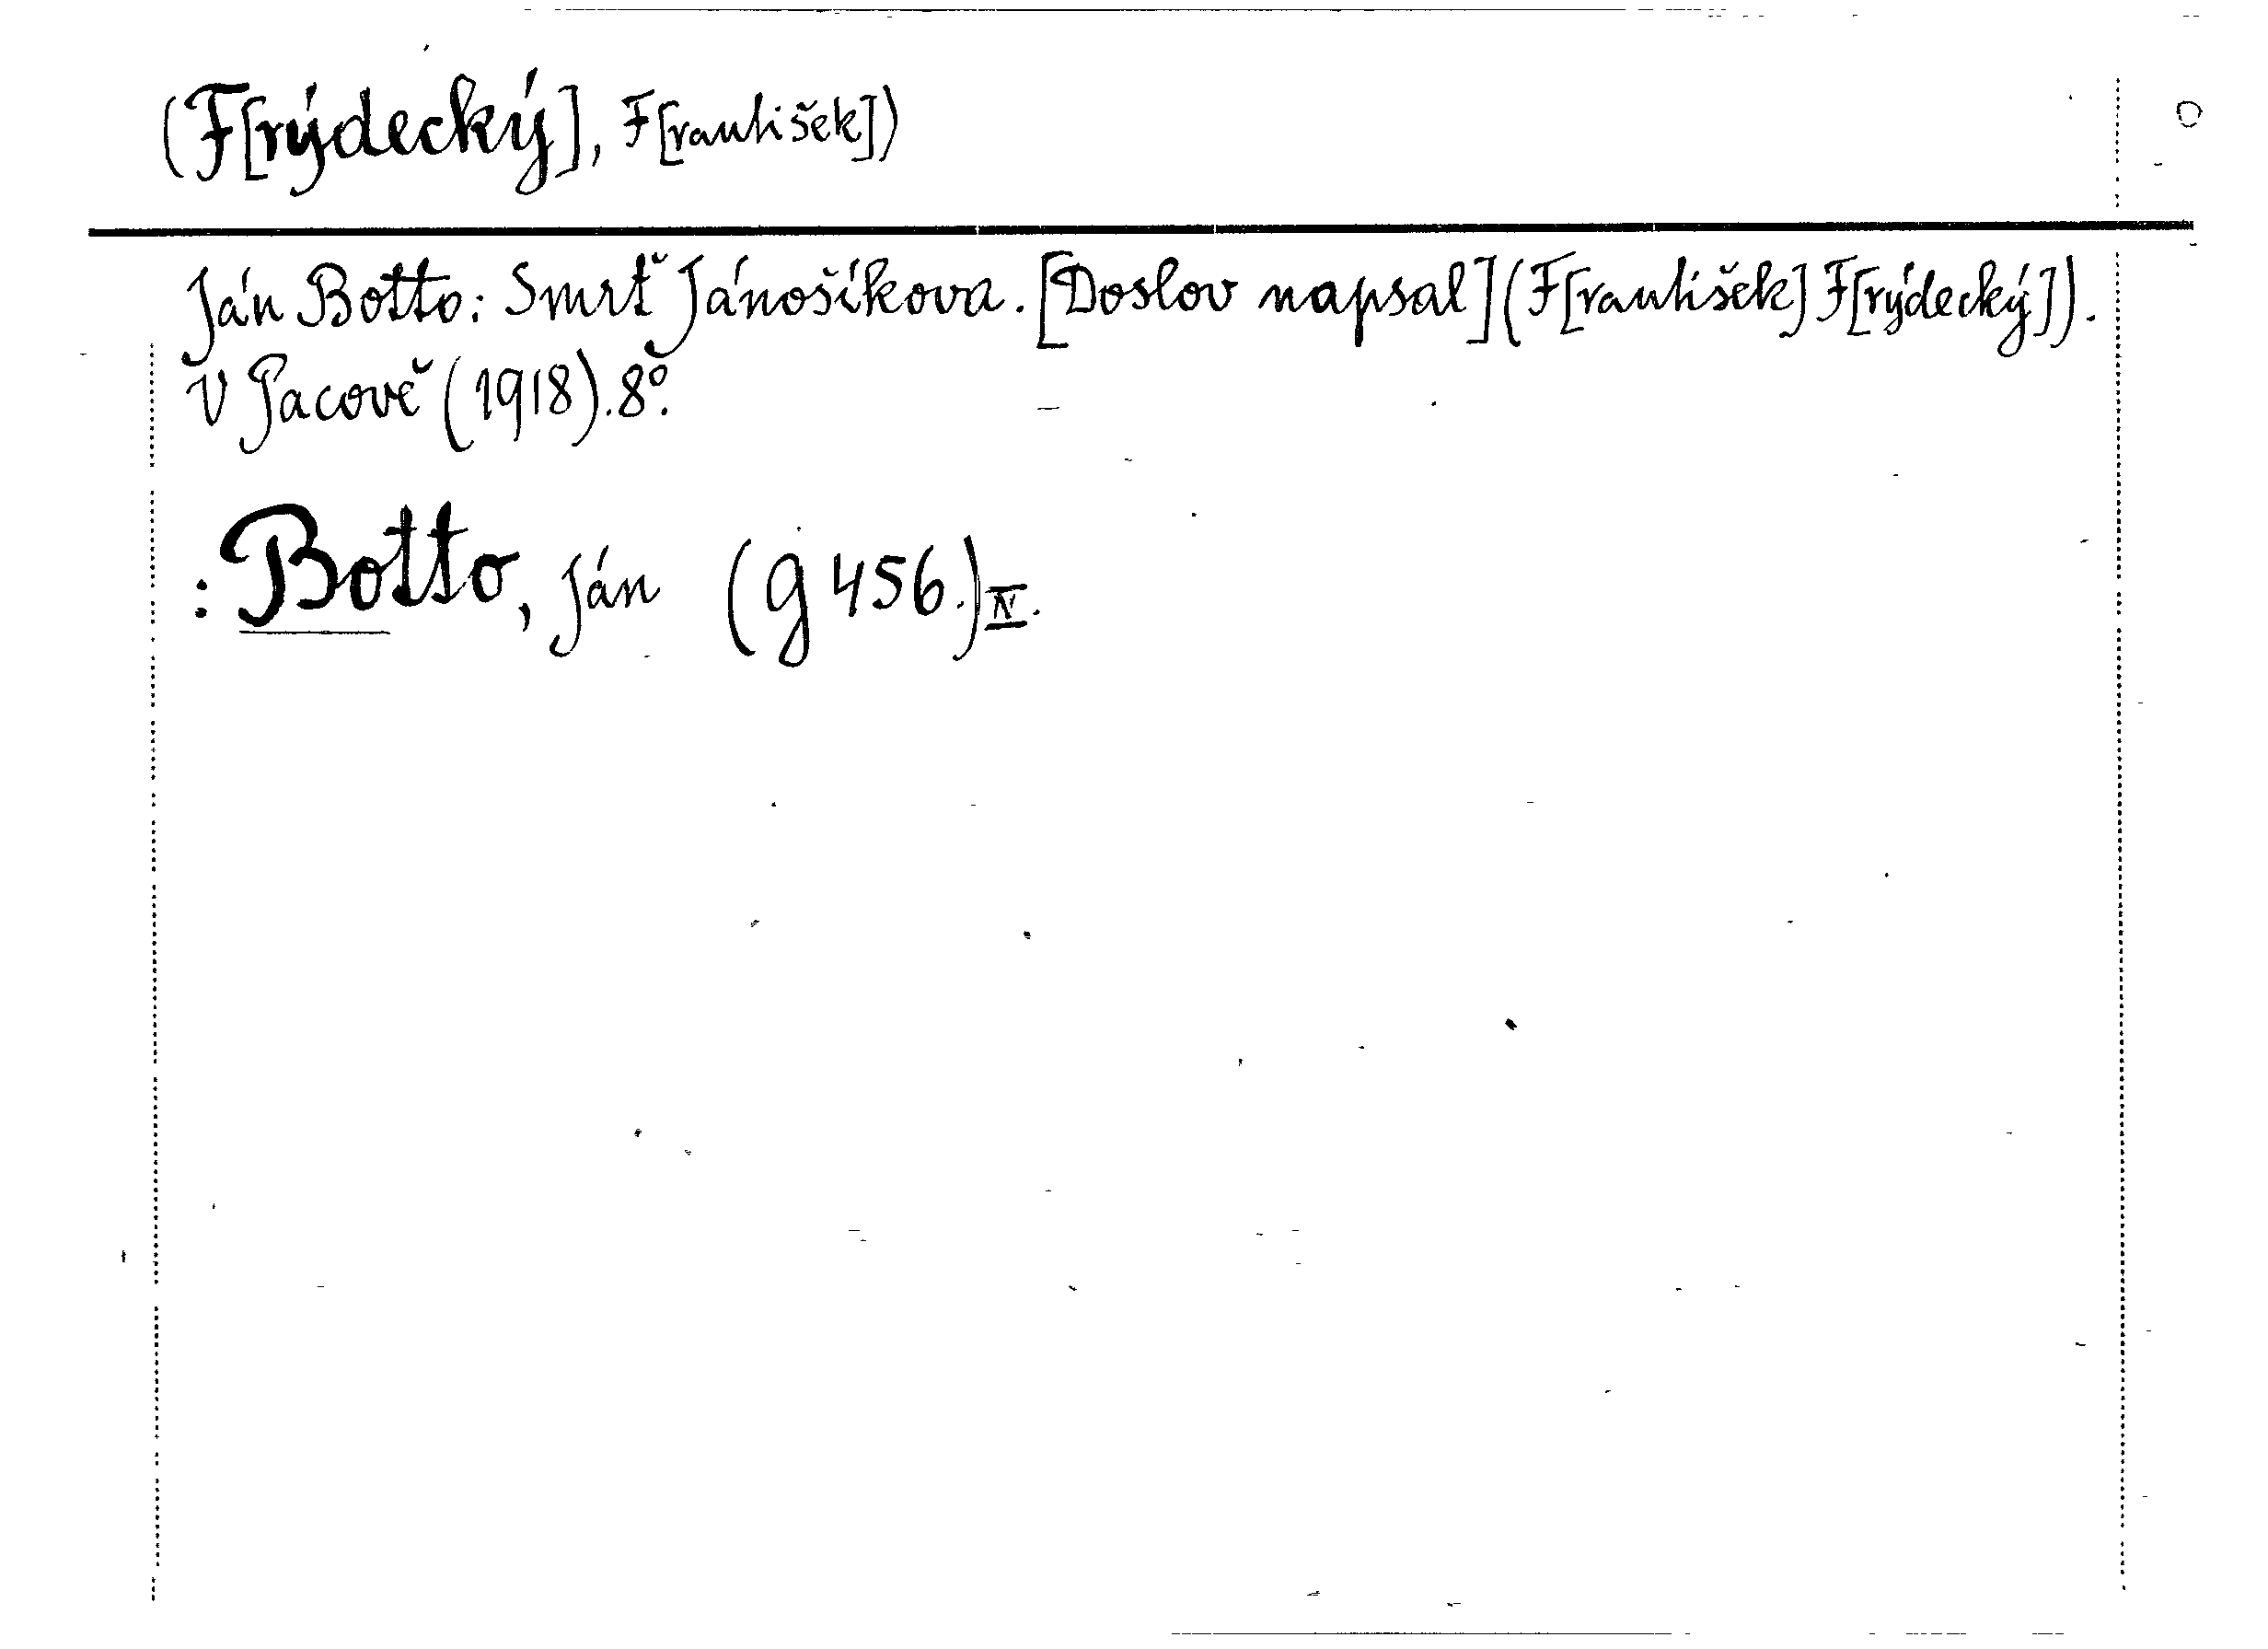 (F[rýdecký], F[rantišek])
Ján Botto: Smrť Jánošíkova. [Doslov napsal] (F[rantišek] F[rýdecký]).
V Pacově (1918). 8º.
: Botto, Ján (g 456.) IV.